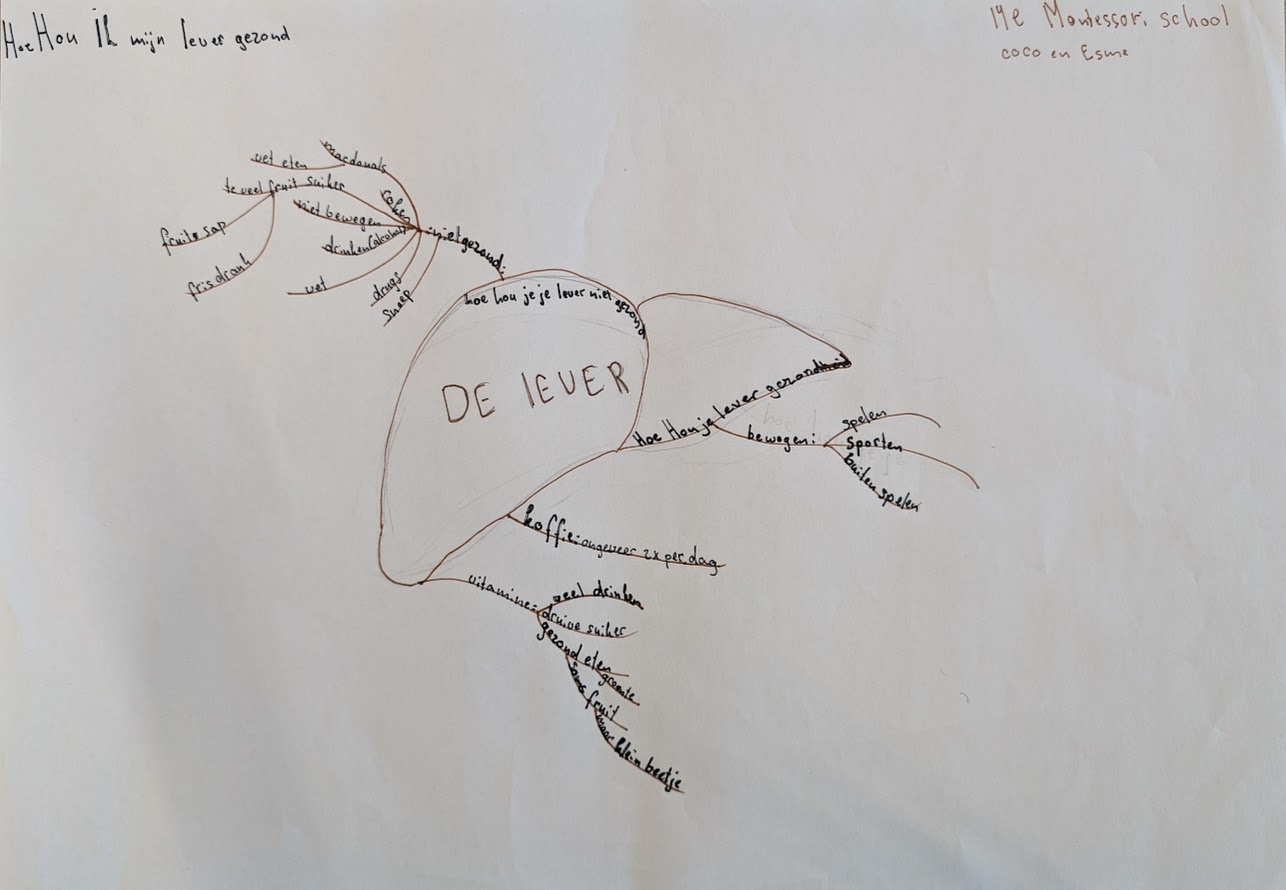 Hoe Hou ik mijn lever gezond
14e Montessori school
coco en Esme
macdonals
vet eten
te veel fruit suiker
roken
niet bewegen
fruit sap
drinken (alcohol)
niet gezond:
frisdrank
vet
drugs
snoep
hoe hou je je lever niet gezond
DE lEVER
Hoe Hou je lever gezond
spelen
bewegen:
sporten
buiten spelen
koffie: ongeveer 2x per dag
vitamine:
veel drinken
druive suiker
gezond eten
groente
soms fruit
maar klein beetje